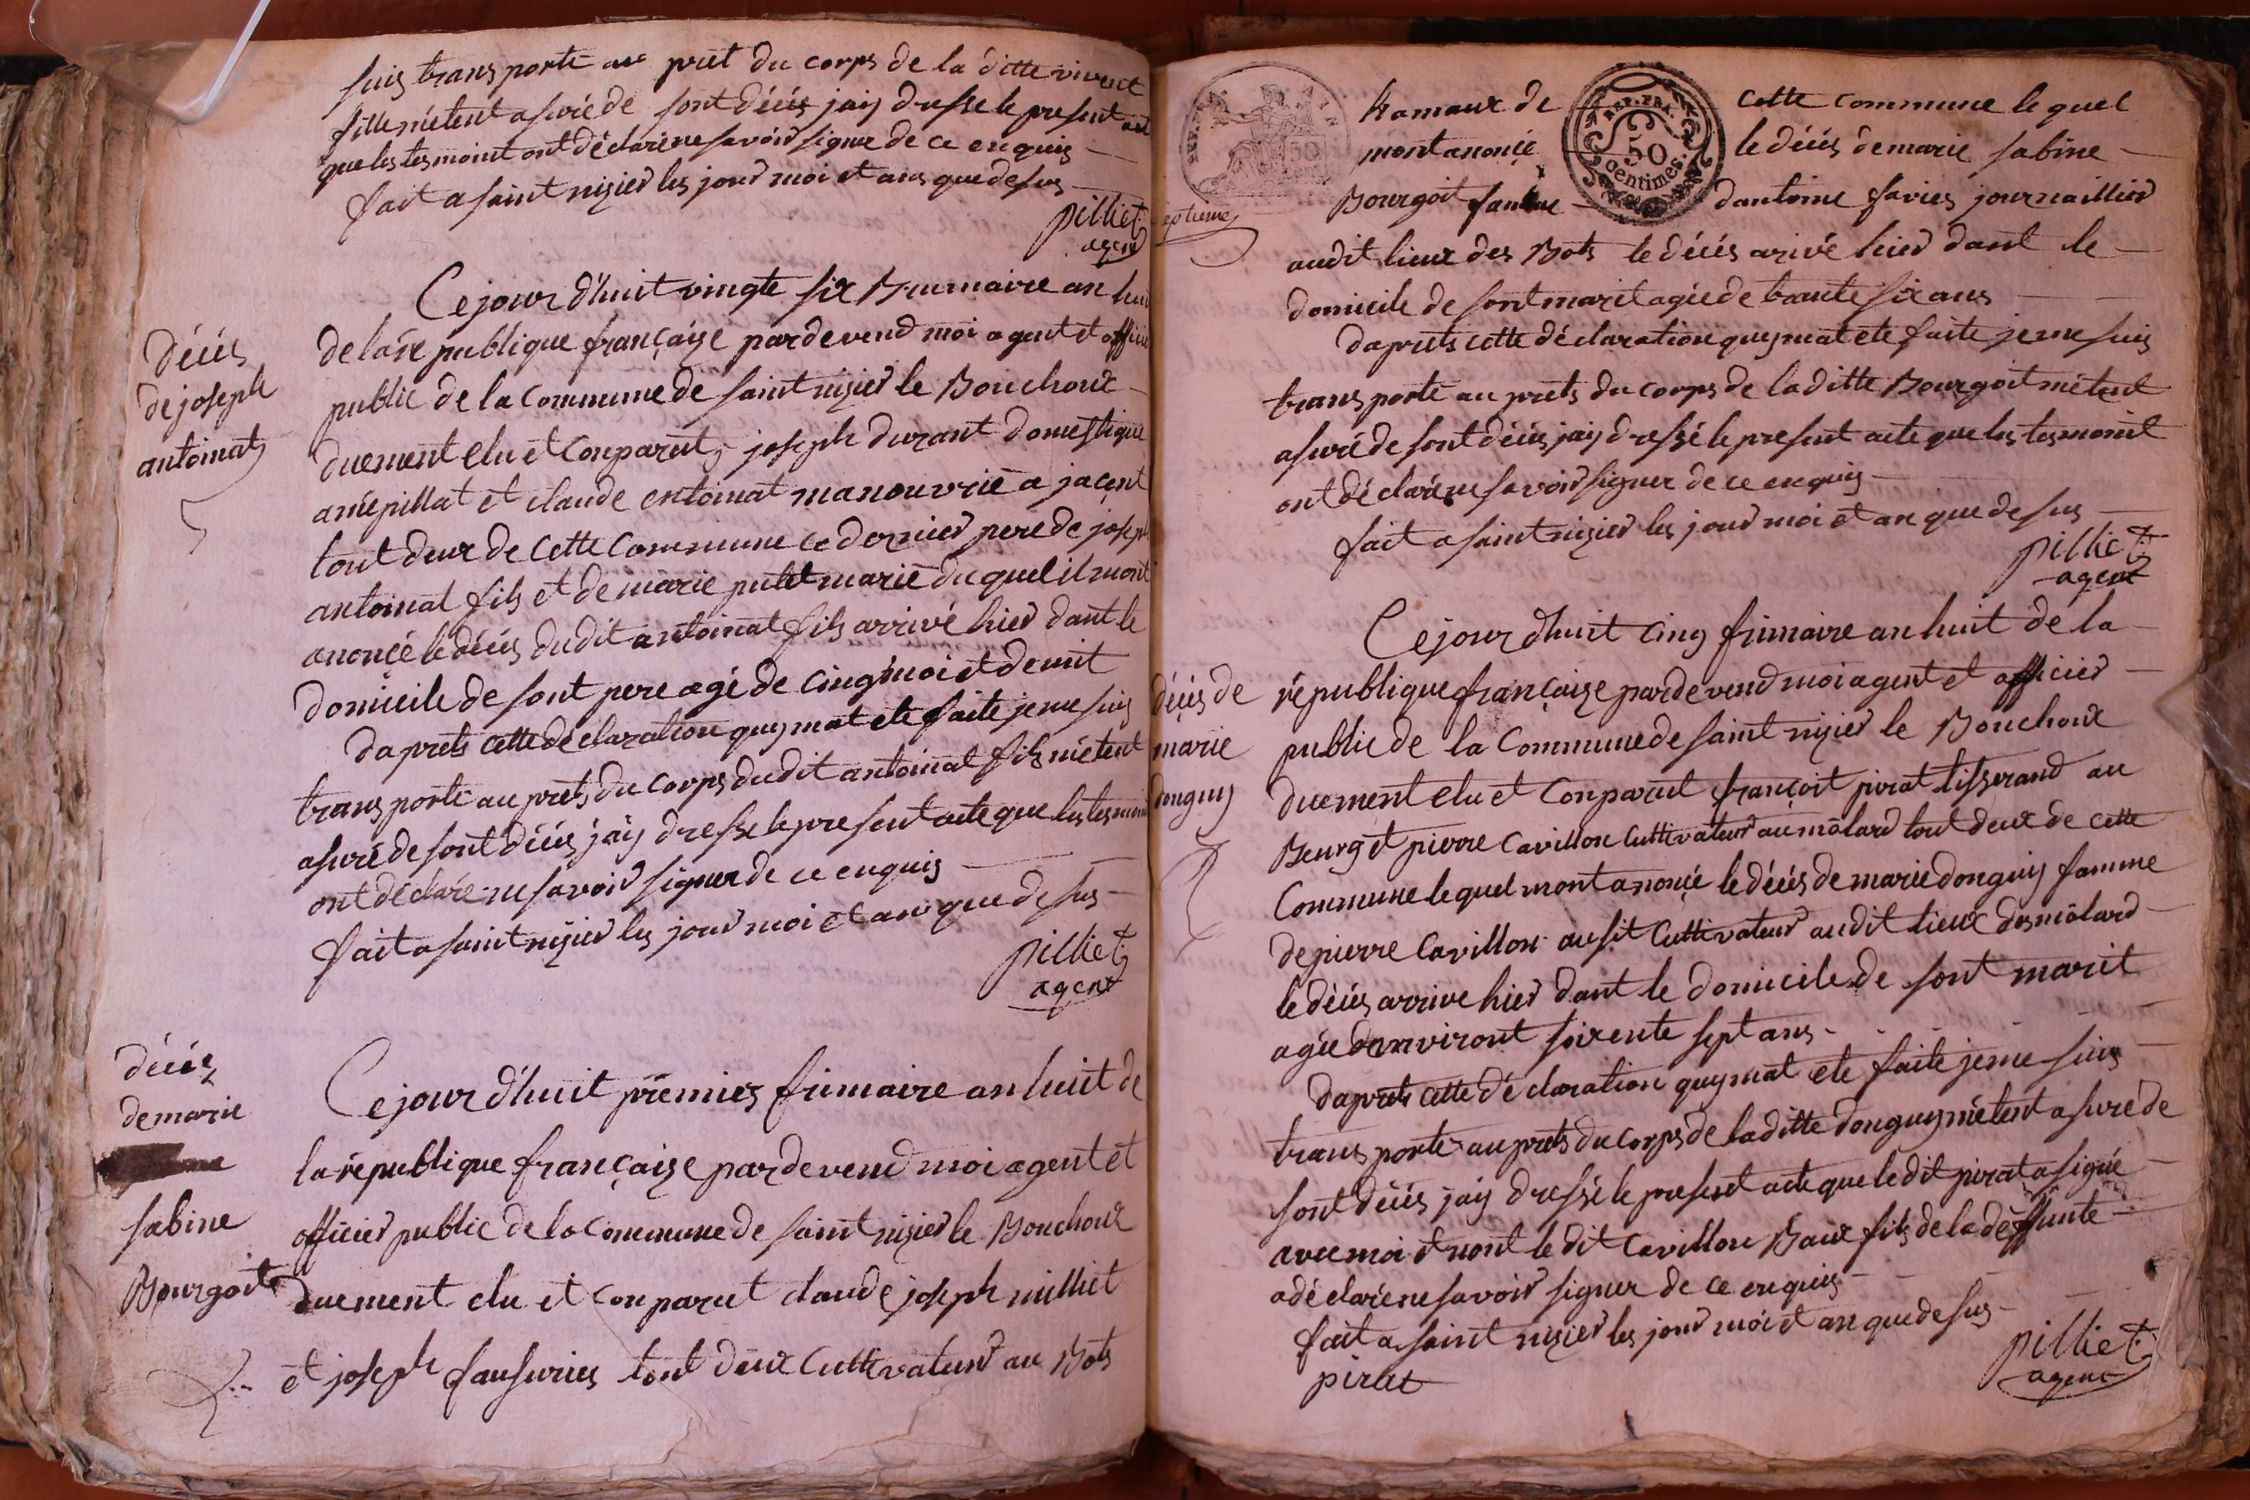 suis transporté au prèt du corps de la ditte vivent
fille métent asuré de sont décés jaiy dresse le present act
que les tesmoint ont déclaré ne savoir signer de ce enquis
fait a saint nizier les jour moi et ans que desus
pilliet
agent
décés
de joseph
antoinat
Ce jour d'huit vingte six Brumaire an huit
de la republique française pardevend moi agent et officié
public de la commune de saint nizier le Bouchoux
duement elu et Conparut joseph durant domestique
amépillat et claude entoinat manouvrié a jacent
tout deux de cette Commune ce dernier pere de joseph
antoinat fils et de marie putet marié duquel il mont
anonçé le décés dudit antoinat fils arrivé hier dant le
domicile de sont pere agé de cinq moi et demit
daprets cette déclaration quy mat ete faite jeme suis
transporté au prets du corps dudit antoinat fils métent
asuré de sont décés jaiy dresse le present acte que les tesmoint
ont déclaré ne savoir signer de ce enquis
fait a saint nizier les jour moi et an que desus
pilliet
agent
décés
de marie
sabine
Bourgoit
Ce jour d'huit premier frimaire an huit de
la republique française pardevend moi agent et
officier public de la Commune de saint nizier le Bouchoux
duement elu et Conparut claude joseph milliet
et joseph fausuries tout deux Cultivateur au Bots
REP. FRA.
50
centimes.
hamaux de cette commune le quel
mont anonçé le décés de marie sabine
Bourgoit famme dantoine favier journaillier
audit lieux des Bots le décés arivé hier dant le
domicile de sont marit agée de trante six ans
daprets cette déclaration quy mat ete faite jeme suis
transporté au prets du corps de la ditte Bourgoit métent
asuré de sont décés jaiy dressé le present acte que les tesmoint
ont déclaré ne savoir signer de ce enquis
fait a saint nizier les jour moi et an que desus
pilliet
agent
décés de
marie
donguy
Ce jour d'huit cinq frimaire an huit de la
république française pardevend moi agent et officier
public de la Commune de saint nizier le Bouchoux
duement elu et Conparut françoit pirat tisserand au
Bourg et pierre Cavillon Cultivateur au mölard tout deux de cette
Commune lequel mont anonçé le décés de marie donguy famme
de pierre Cavillon ausit Cultivateur audit lieux des mölard
le décés arrive hier dant le domicile de sont marit
agée danviront soixente sept ans
daprets cette déclaration quy mat ete faite jeme suis
transporté au prets du corps de la ditte donguy métent asuré de
sont décés jaiy dressé le present acte que le dit pirat a signé
avec moi et nont le dit Cavillon Baux fils de la deffunte
a déclaré ne savoir signer de ce enquis
fait a saint nizier les jour moi et an que desus
pirat
pilliet
agent